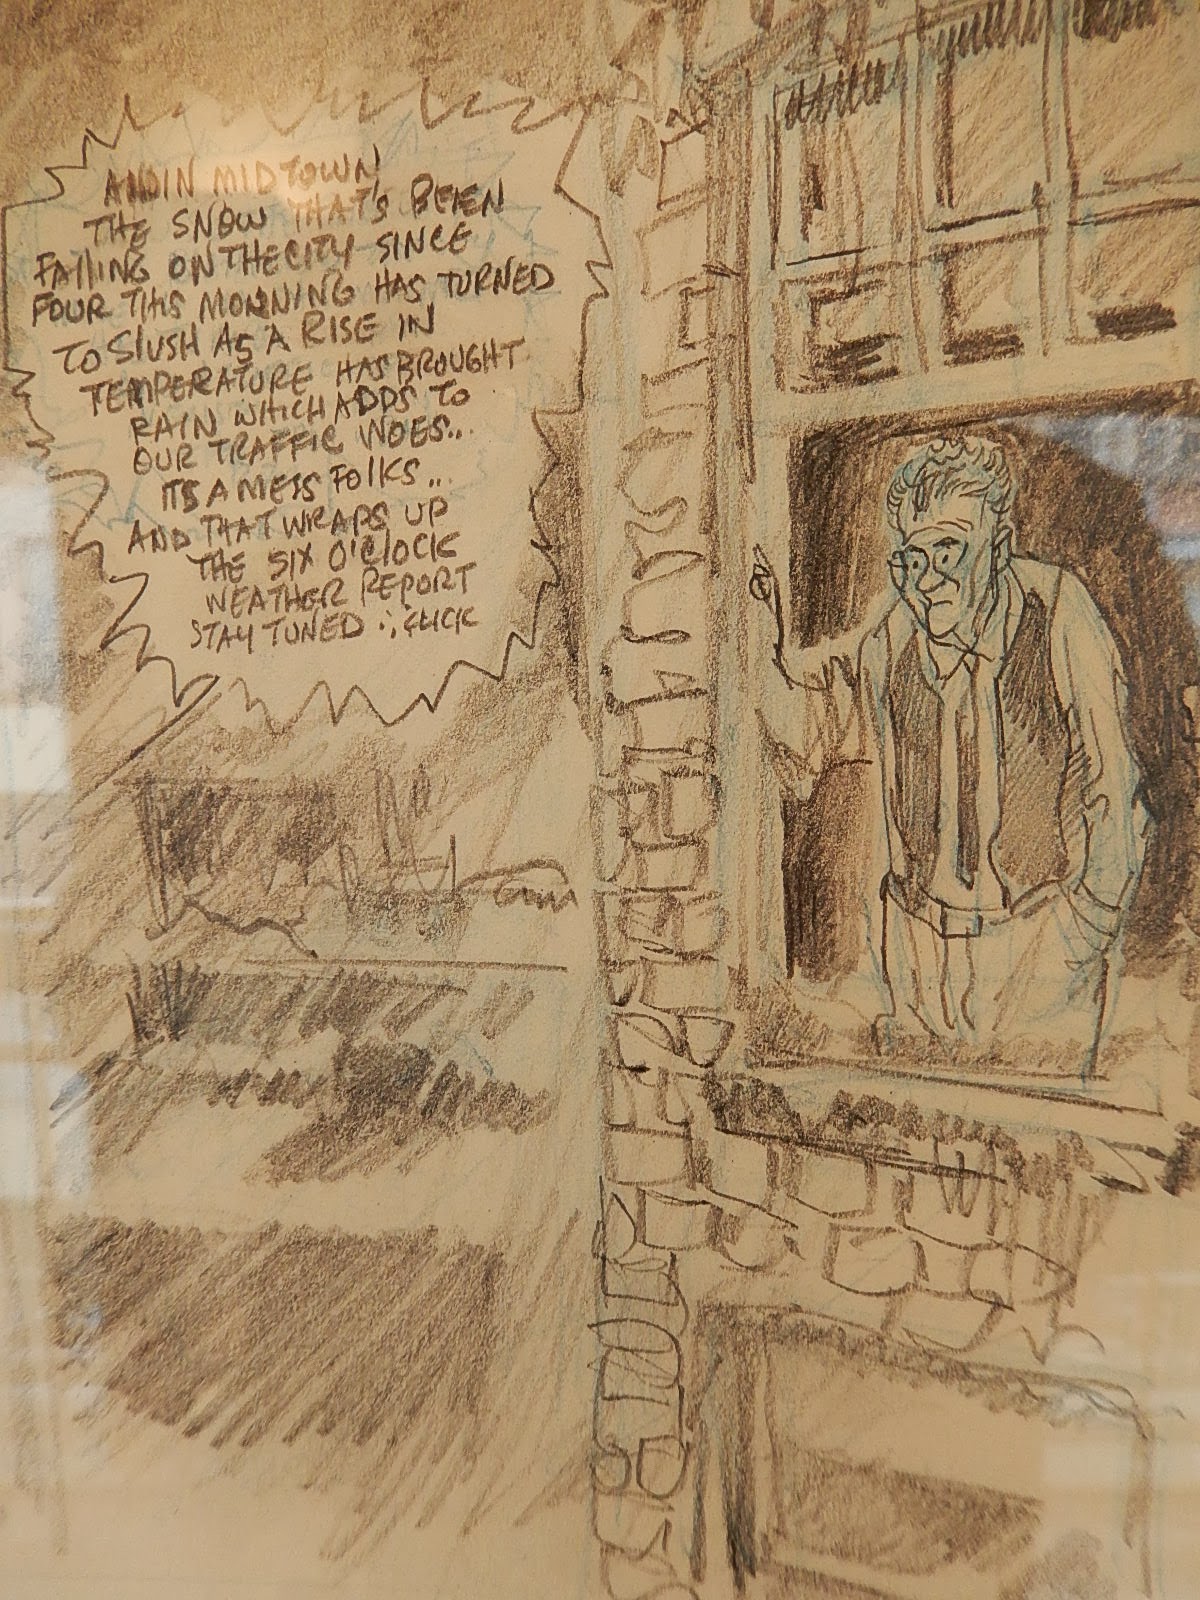 AND IN MIDTOWN
THE SNOW THAT'S BEEN
FALLING ON THE CITY SINCE
FOUR THIS MORNING HAS TURNED
TO SLUSH AS A RISE IN
TEMPERATURE HAS BROUGHT
RAIN WHICH ADDS TO
OUR TRAFFIC WOES...
ITS A MESS FOLKS...
AND THAT WRAPS UP
THE SIX O'CLOCK
WEATHER REPORT
STAY TUNED ∴ CLICK